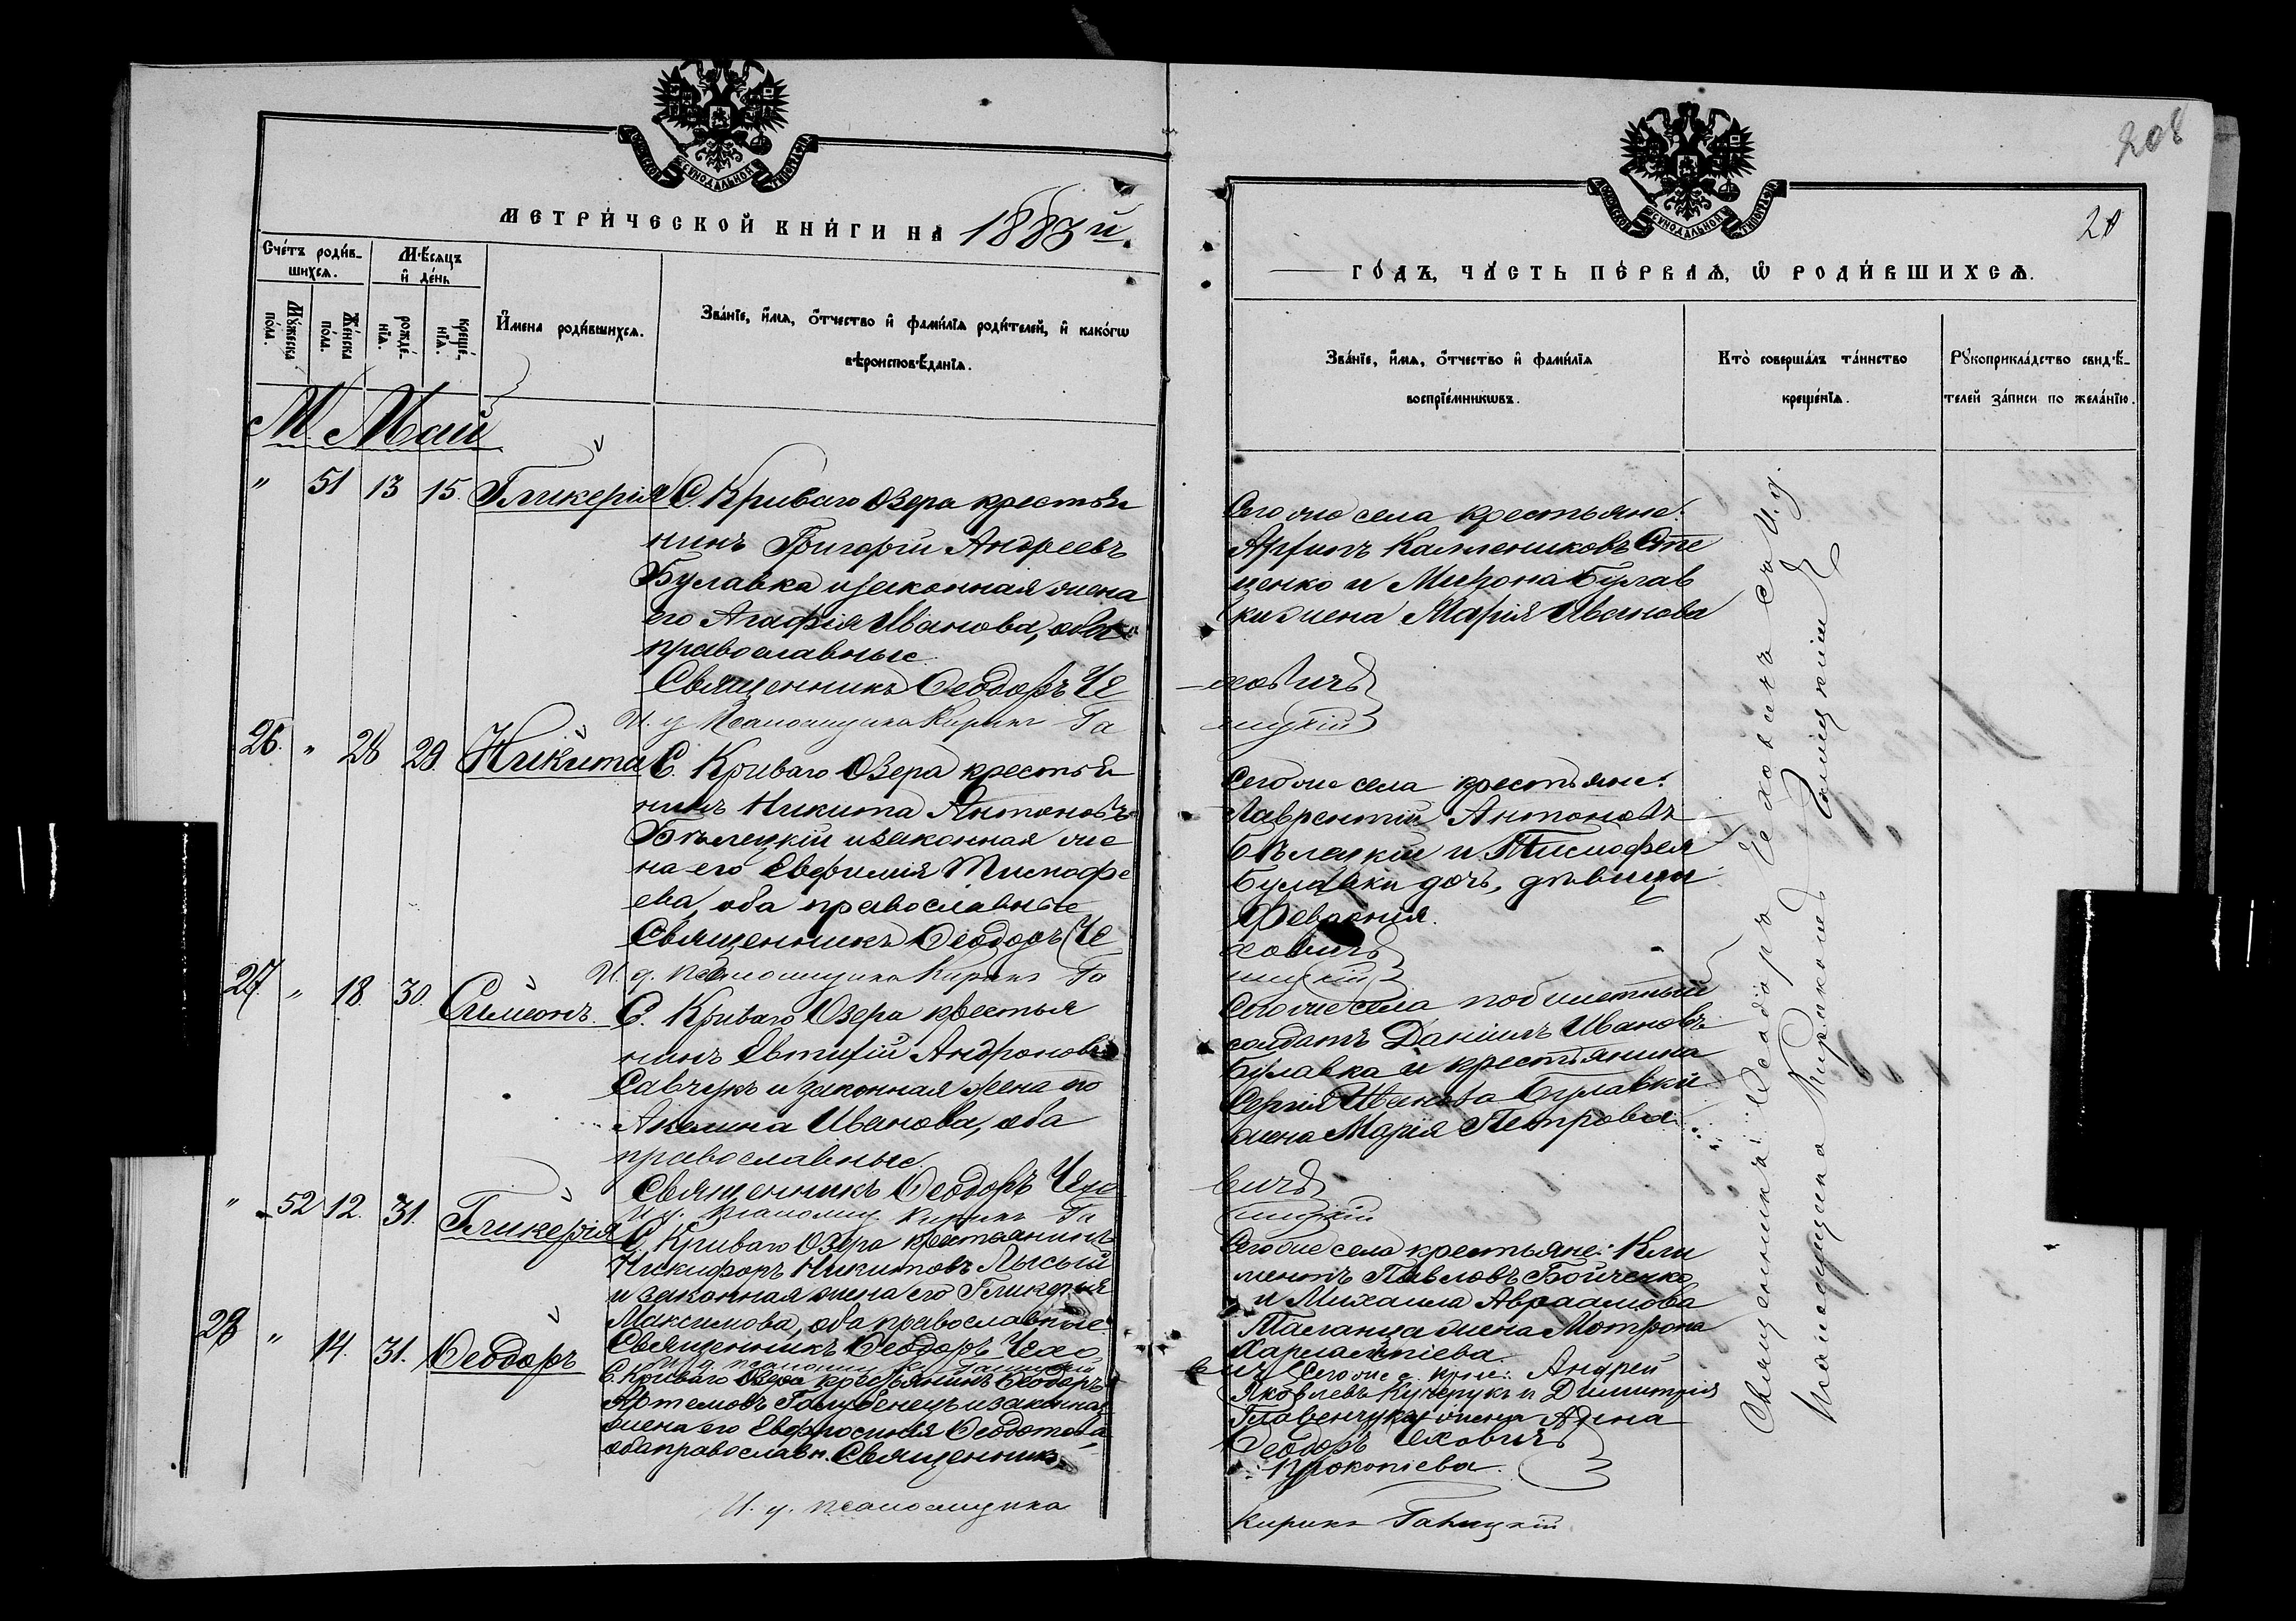 МОСКОВСКОЙ СѴНОДАЛЬНОЙ ТИПОГРАФІИ
МЕТРИ́ЧЕСКОЙ КНИ́ГИ НА 1883 й.
Сче́тъ роди́в-
шихсѧ.
Мѣ́сѧцъ
и҆ де́нь
Мꙋ́жеска
по́ла.
Же́нска
по́ла.
рожде́-
нїѧ.
креще́-
нїѧ.
И҆мена роди́вшихсѧ.
Зва́нїе, и҆́мѧ, ѻ҆́тчество и҆ фами́лїѧ роди́телей, и҆ како́гѡ
вѣроисповѣ́данїѧ.
М. Май
" 51 13 15. Гликерія
С. Криваго Озера крестья
нинъ Григорій Андреевъ
Булавка и законная жена
его Агафія Иванова, оба
православные.
Священникъ Ѳеодоръ Че
И. д. Псаломщика Кирикъ Га
26. " 28 29. Никита
С. Криваго Озера крестья
нинъ Никита Антоновъ
Бѣлецкій и законная же
на его Евфимія Тимофе
ева, оба православные
Священникъ Ѳеодоръ Че
И. д. псаломщика Кирикъ Га
27. " 18. 30. Симеонъ
С. Криваго Озера крестья
нинъ Евтифій Андроновъ
Савчукъ и законная жена его
Акилина Иванова, оба
православные.
Священникъ Ѳеодоръ Чехо
И д. псаломщ. Кирикъ Га
" 52 12. 31. Гликерія
С. Криваго Озера крестьянинъ
Никифоръ Никитовъ Лысый
и законная жена его Гликерія
Максимова, оба православные.
Священникъ Ѳеодоръ Чехо
И д. псаломщ. К. Галицкій
28 " 14. 31. Ѳеодоръ
С. Криваго Озера крестьянинъ Ѳеодоръ
Артемовъ Голубенецъ и законная
жена его Евфросинія Ѳеодотова
оба православн. Священникъ
И. д. псаломщика
208
20
МОСКОВСКОЙ СѴНОДАЛЬНОЙ ТИПОГРАФІИ
ГО́ДЪ, ЧА́СТЬ ПЕ́РВАѦ, Ѡ҆ РОДИ́ВШИХСѦ.
Зва́нїе, и҆́мѧ, ѻ҆́тчество и҆ фами́лїѧ
воспрїе́мникѡвъ.
Кто̀ соверша́лъ та́инство
креще́нїѧ.
Рꙋкоприкла́дство свидѣ́-
телей за́писи по жела́нїю.
Сего же села крестьяне:
Архипъ Каллениковъ Сте
ценко и Мирона Булав
ки жена Марія Иванова
ховичъ
лицкій
Сего же села крестьяне:
Лаврентій Антоновъ
Бѣлецкій и Тимофея
Булавки дочь, дѣвица
Февронія.
ховичъ
лицкій
Сего же села побилетный
солдатъ Даніилъ Ивановъ
Булавка и крестьянина
Сергія Иванова Булавки
жена Марія Петрова.
вичъ
лицкій
Сего же села крестьяне: Кли
ментъ Павловъ Бойченко
и Михаила Авраамова
Таланца жена Мотрона
Харлампіева.
вичъ Сего же с. крес: Андрей
Яковлевъ Кучерукъ и Димитрія
Главенчука жена Анна
Ѳеодоръ Чеховичъ
Прокопіева.
Кирикъ Галицкій
Священникъ Ѳеодоръ Чеховичъ съ И. д.
Псаломщика Кирикомъ Галицкимъ